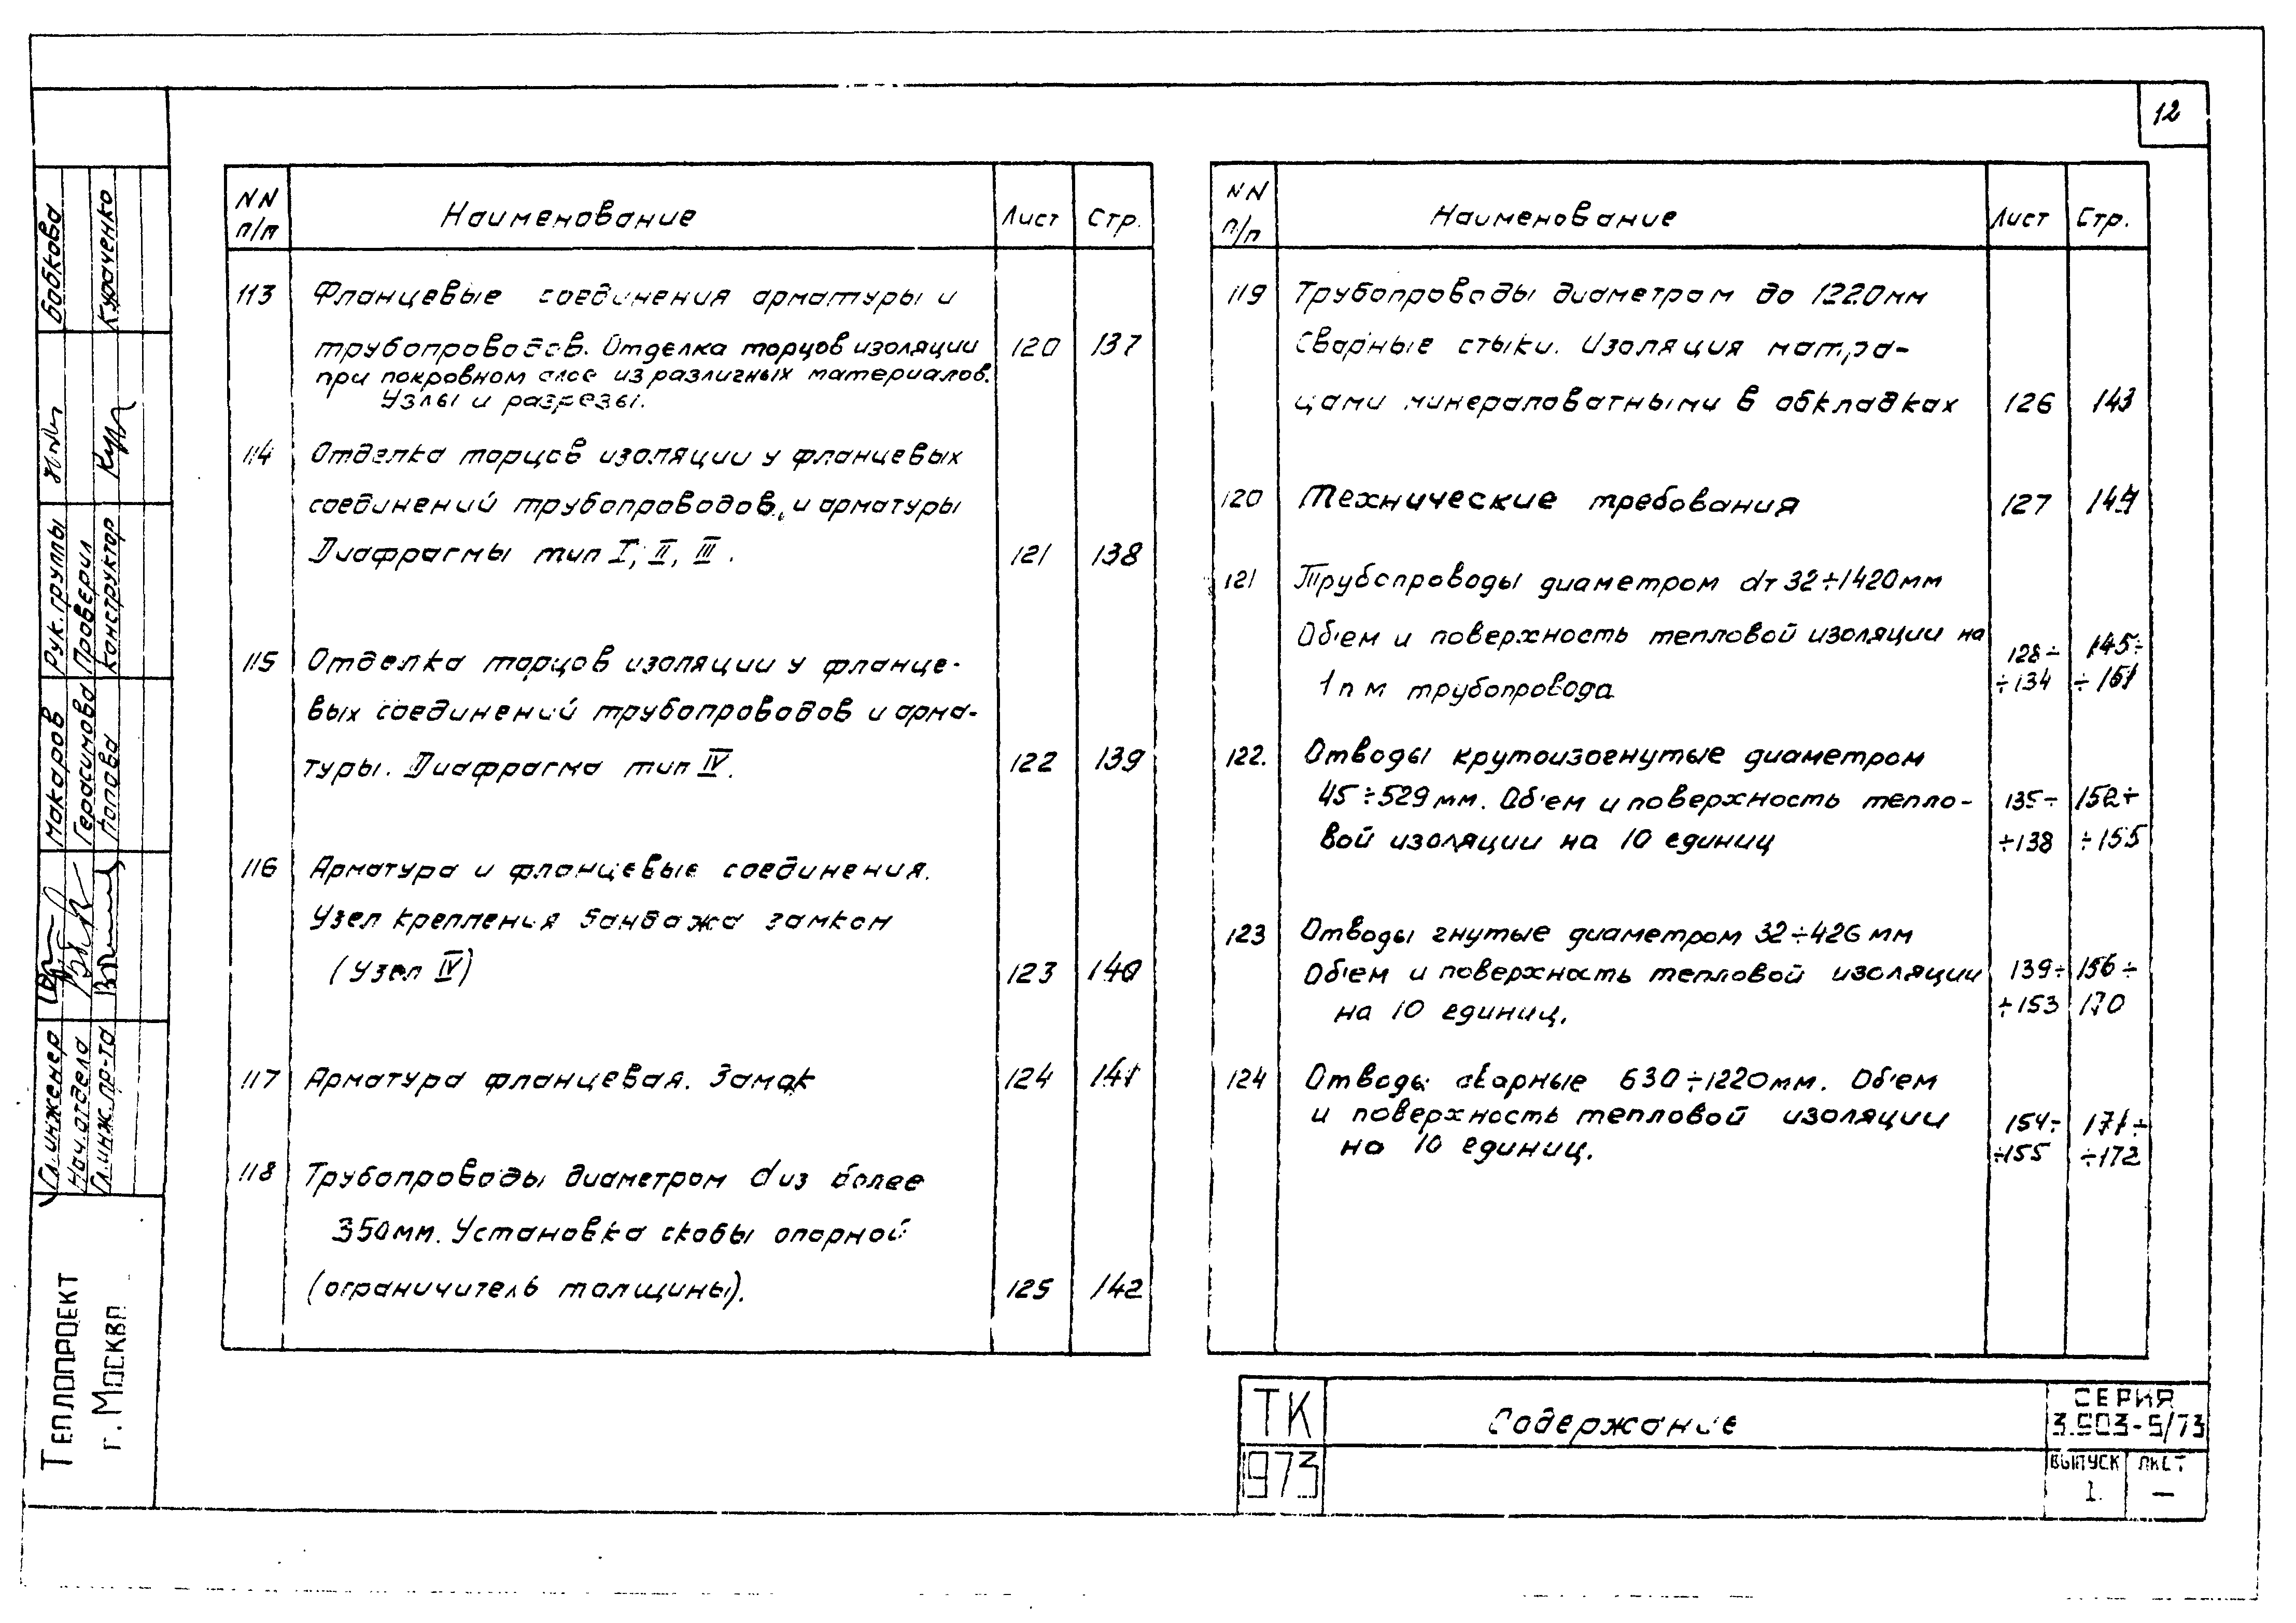 12
NN п/п Наименование Лист Стр.
113 Фланцевые соединения арматуры и
трубопроводов. Отделка торцов изоляции 120 137
при покровном слое из различных материалов.
Узлы и разрезы.
114 Отделка торцов изоляции у фланцевых
соединений трубопроводов и арматуры
Диафрагмы тип I, II, III. 121 138
115 Отделка торцов изоляции у фланце-
вых соединений трубопроводов и арма-
туры. Диафрагма тип IV. 122 139
116 Арматура и фланцевые соединения.
Узел крепления бандажа замком
(Узел IV) 123 140
117 Арматура фланцевая. Замок 124 141
118 Трубопроводы диаметром dиз более
350мм. Установка скобы опорной
(ограничитель толщины). 125 142
NN п/п Наименование Лист Стр.
119 Трубопроводы диаметром до 1220мм
Сварные стыки. Изоляция матра-
цами минераловатными в обкладках 126 143
120 Технические требования 127 144
121 Трубопроводы диаметром dт 32÷1420мм
Об'ем и поверхность тепловой изоляции на 128÷ 145÷
1 п м трубопровода ÷134 ÷151
122. Отводы крутоизогнутые диаметром
45÷529мм. Об'ем и поверхность тепло- 135÷ 152÷
вой изоляции на 10 единиц ÷138 ÷155
123 Отводы гнутые диаметром 32÷426 мм
Об'ем и поверхность тепловой изоляции 139÷ 156÷
на 10 единиц. ÷153 170
124 Отводы сварные 630÷1220мм. Об'ем
и поверхность тепловой изоляции 154÷ 171÷
на 10 единиц. ÷155 ÷172
ТК
1973
Содержание
СЕРИЯ
3.903-5/73
ВЫПУСК ЛИСТ
1. —
Бобкова
Курченко
Рук. группы
Проверил
Конструктор
Макаров
Герасимова
Попова
Гл. инженер
Нач. отдела
Гл. инж. пр-та
ТЕПЛОПРОЕКТ
г. МОСКВА